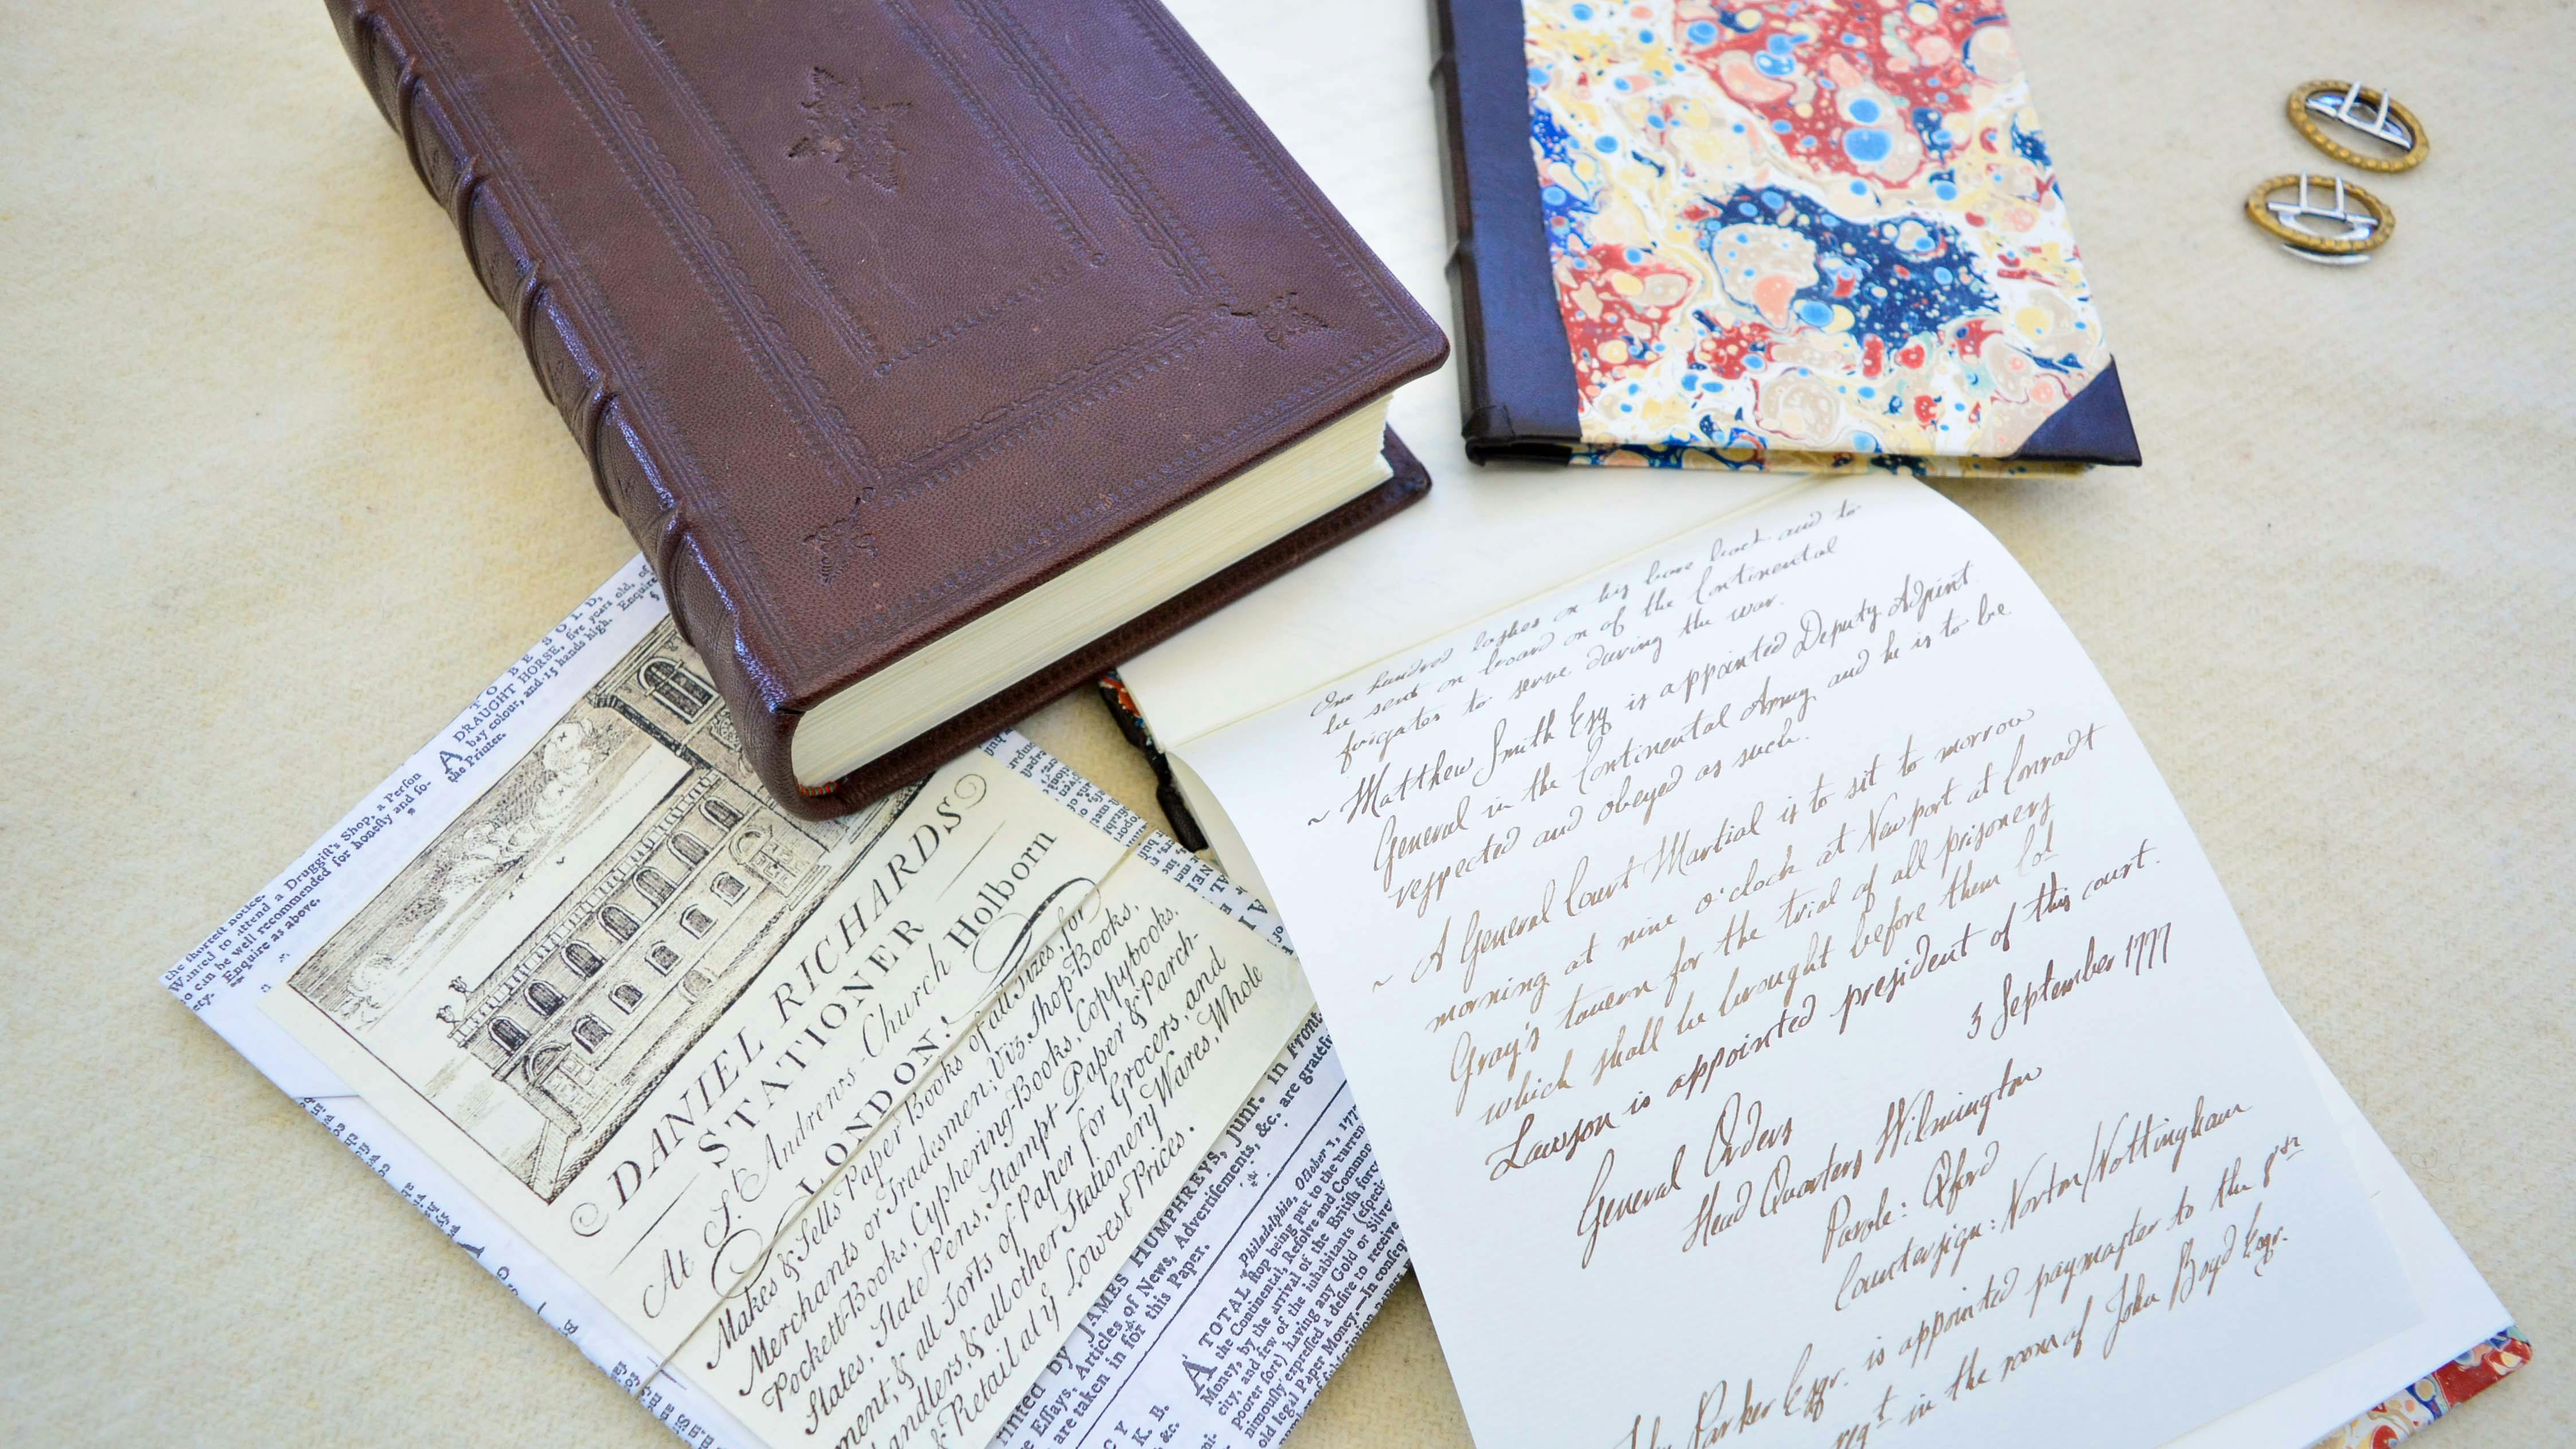 TO BE SOLD,
A DRAUGHT HORSE, five years old, of
bay colour, and 15 hands high. Enquire
the Printer.
the shortest notice.
Wanted to attend a Druggist's Shop, a Person
o can be well recommended for honesty and so-
ety. Enquire as above.
DANIEL RICHARDS
STATIONER
At St. Andrews-Church Holborn
LONDON.
Makes & Sells Paper Books of all Sizes, for
Merchants or Tradesmen; Viz. Shop-Books,
Pockett-Books, Cyphering-Books, Coppybooks,
States, State Pens, Stampt-Paper & Parch-
ment, & all Sorts of Paper for Grocers, and
andlers, & all other Stationery Wares, Whole
& Retail at ye Lowest Prices.
rinted by JAMES HUMPHREYS, junr. in Front
Essays, Articles of News, Advertisements, &c. are grateful
are taken in for this Paper.
Philadelphia, October 1, 177
A TOTAL stop being put to the curren
the Continental, Resolve and Common
Money, by the arrival of the British forc
city, and few of the inhabitants (especi
poorer sort) having any Gold or Silver
nimously expressed a desire to receive
old legal Paper Money.—In conseq
One hundred lashes on his bare back and to
be sent on board on of the Continental
frigates to serve during the war.
~ Matthew Smith Esq is appointed Deputy Adjint
General in the Continental Army and he is to be
respected and obeyed as such.
~ A General Court Martial is to sit to morrow
morning at nine o'clock at Newport at Conradt
Gray's tavern for the trial of all prisoners
which shall be brought before them Col
Lawson is appointed president of this court.
3 September 1777
General Orders
Head Quarters Wilmington
Parole: Oxford
Countersign: Norton/Nottingham
Parker Esqr. is appointed paymaster to the
regt in the room of John Boyd Esqr.